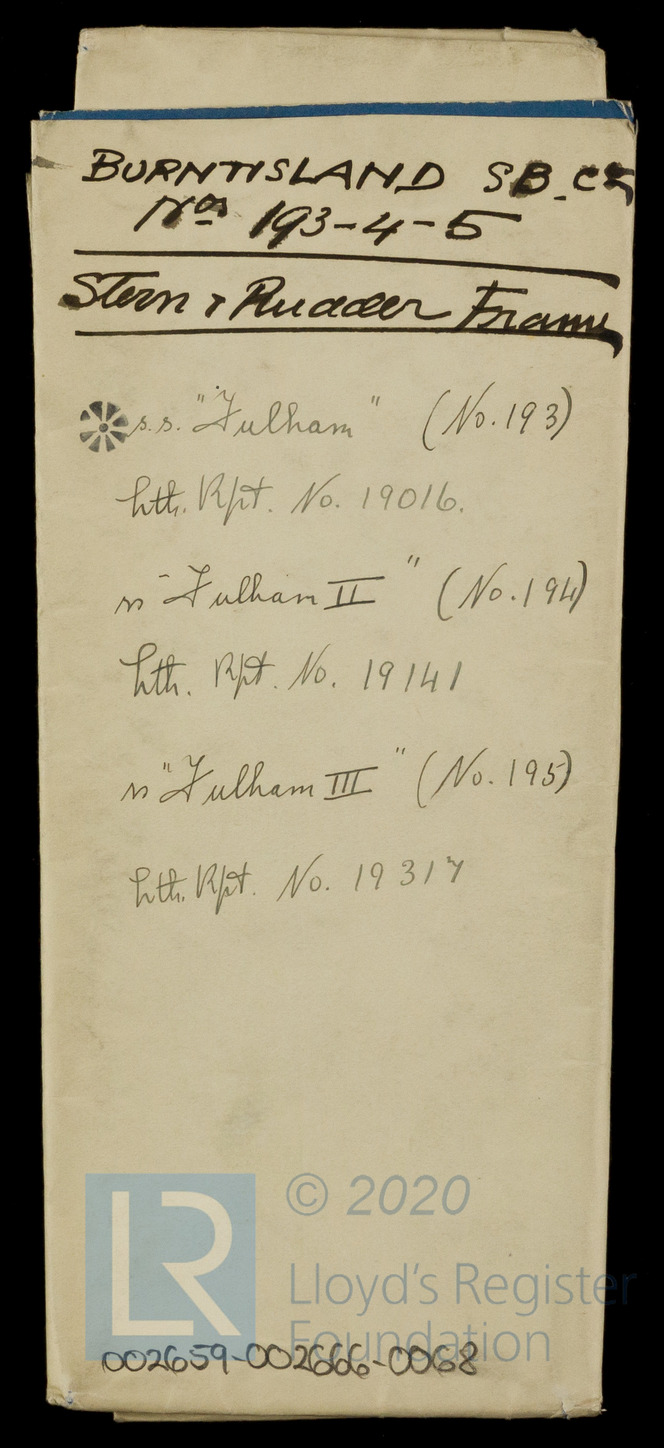 BURNTISLAND S.B. Co
Nos 193-4-5
Stern & Rudder Frame
s.s. "Fulham" (No. 193)
Lth. Rpt. No. 19016.
ss "Fulham II" (No. 194)
Lth. Rpt. No. 19141
ss "Fulham III" (No. 195)
Lth. Rpt. No. 19317
LR
© 2020
Lloyd's Register
Foundation
002659-002666-0068